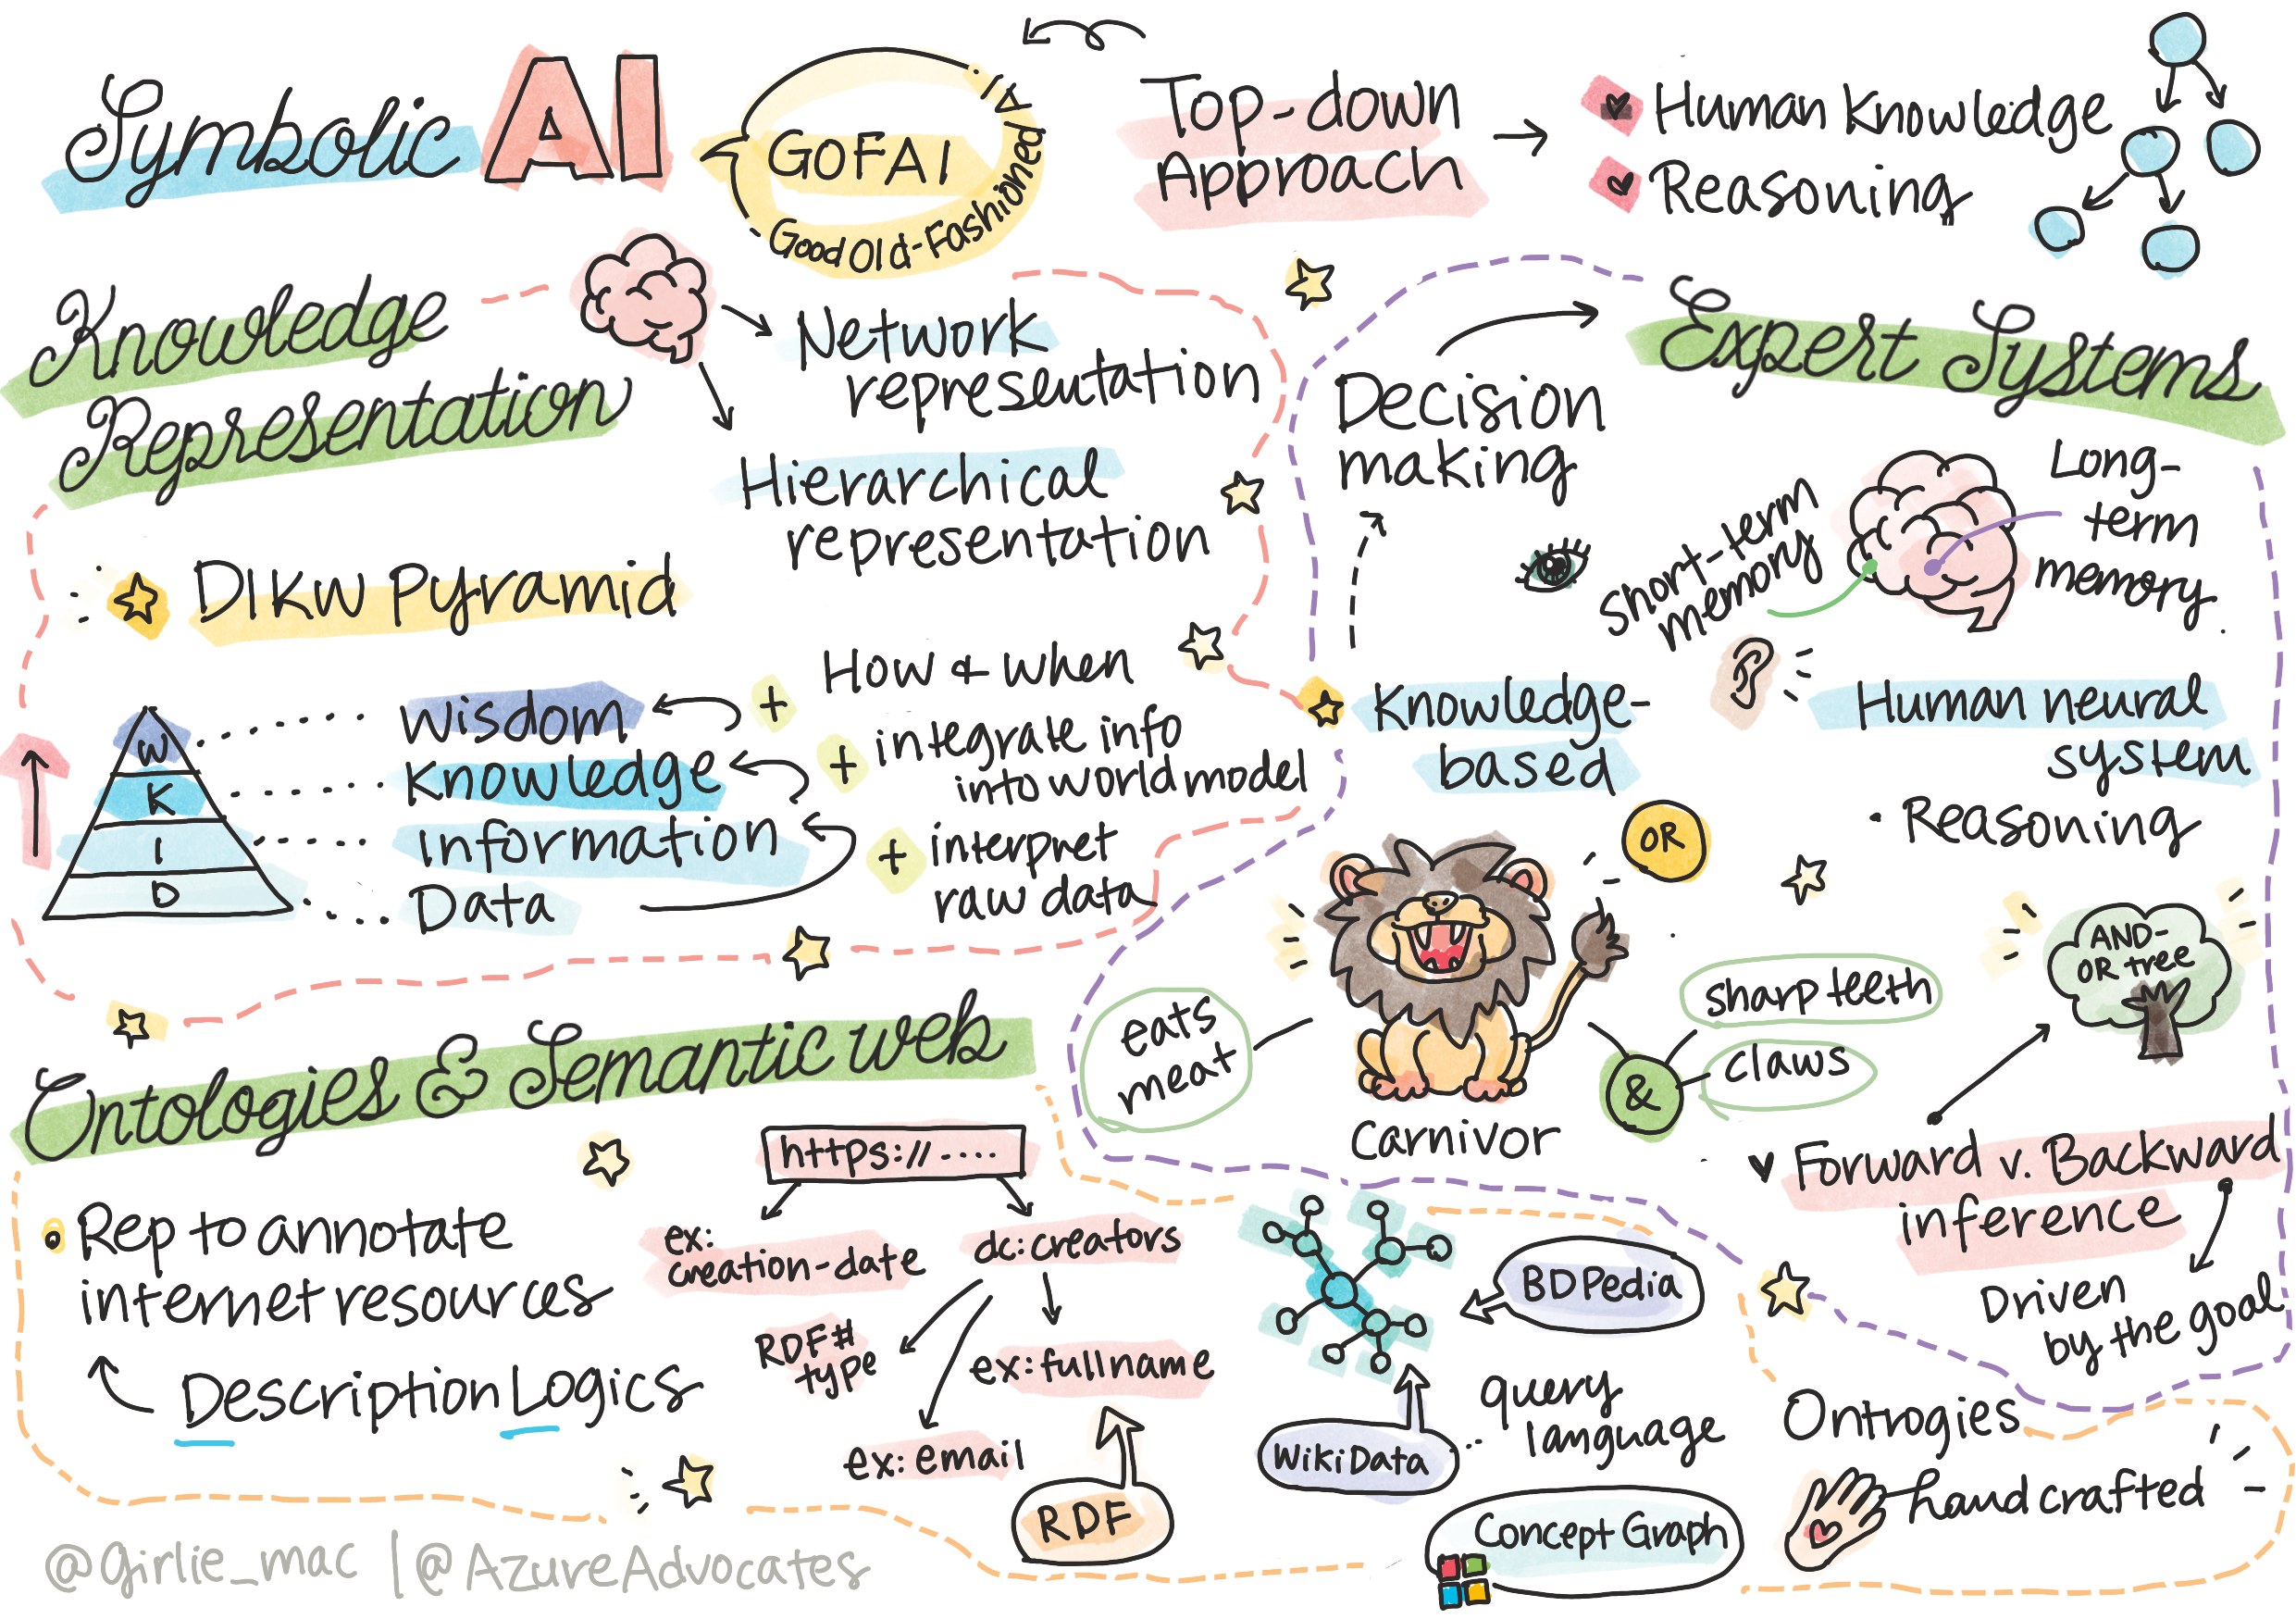 Symbolic AI
GOFAI
Good Old-Fashioned AI
Top-down
Approach
Human Knowledge
Reasoning
Knowledge
Representation
Network
representation
Hierarchical
representation
DIKW Pyramid
W
K
I
D
Wisdom
Knowledge
Information
Data
+ How & when
+ integrate info
into world model
+ interpret
raw data
Expert Systems
Decision
making
Short-term
memory
Long-
term
memory
Knowledge-
based
Human neural
system
• Reasoning
OR
eats
meat
sharp teeth
&
claws
carnivor
AND-
OR tree
Forward v. Backward
inference
Driven
by the goal
Ontologies & Semantic web
Rep to annotate
internet resources
Description Logics
https://....
ex:
creation-date
dc:creators
RDF#
type
ex:fullname
ex:email
RDF
BDPedia
WikiData
query
language
Concept Graph
Ontrogies
handcrafted
@girlie_mac | @AzureAdvocates